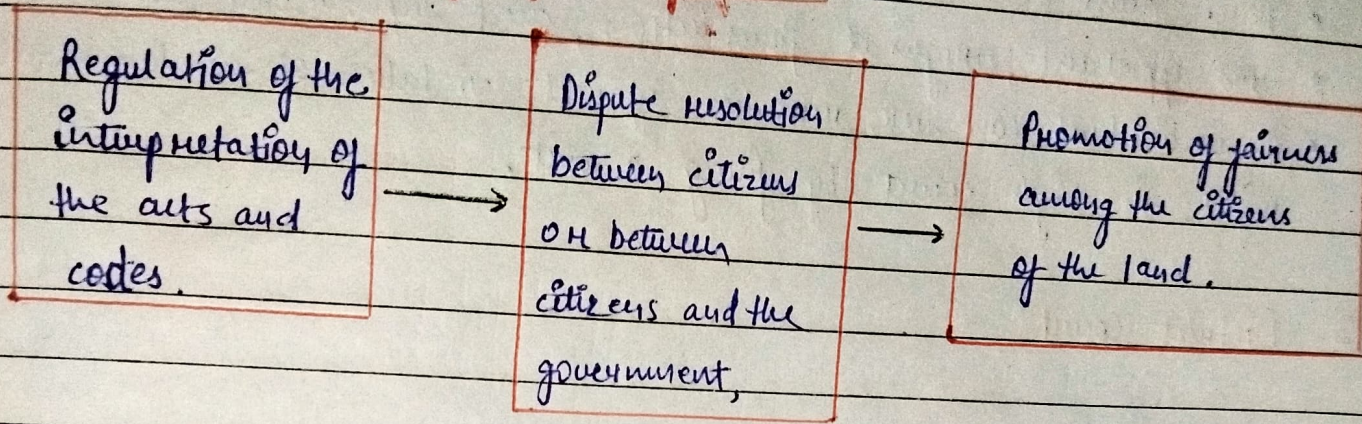 Regulation of the
interpretation of
the acts and
codes.
Dispute resolution
between citizens
or between
citizens and the
government,
Promotion of fairness
among the citizens
of the land.